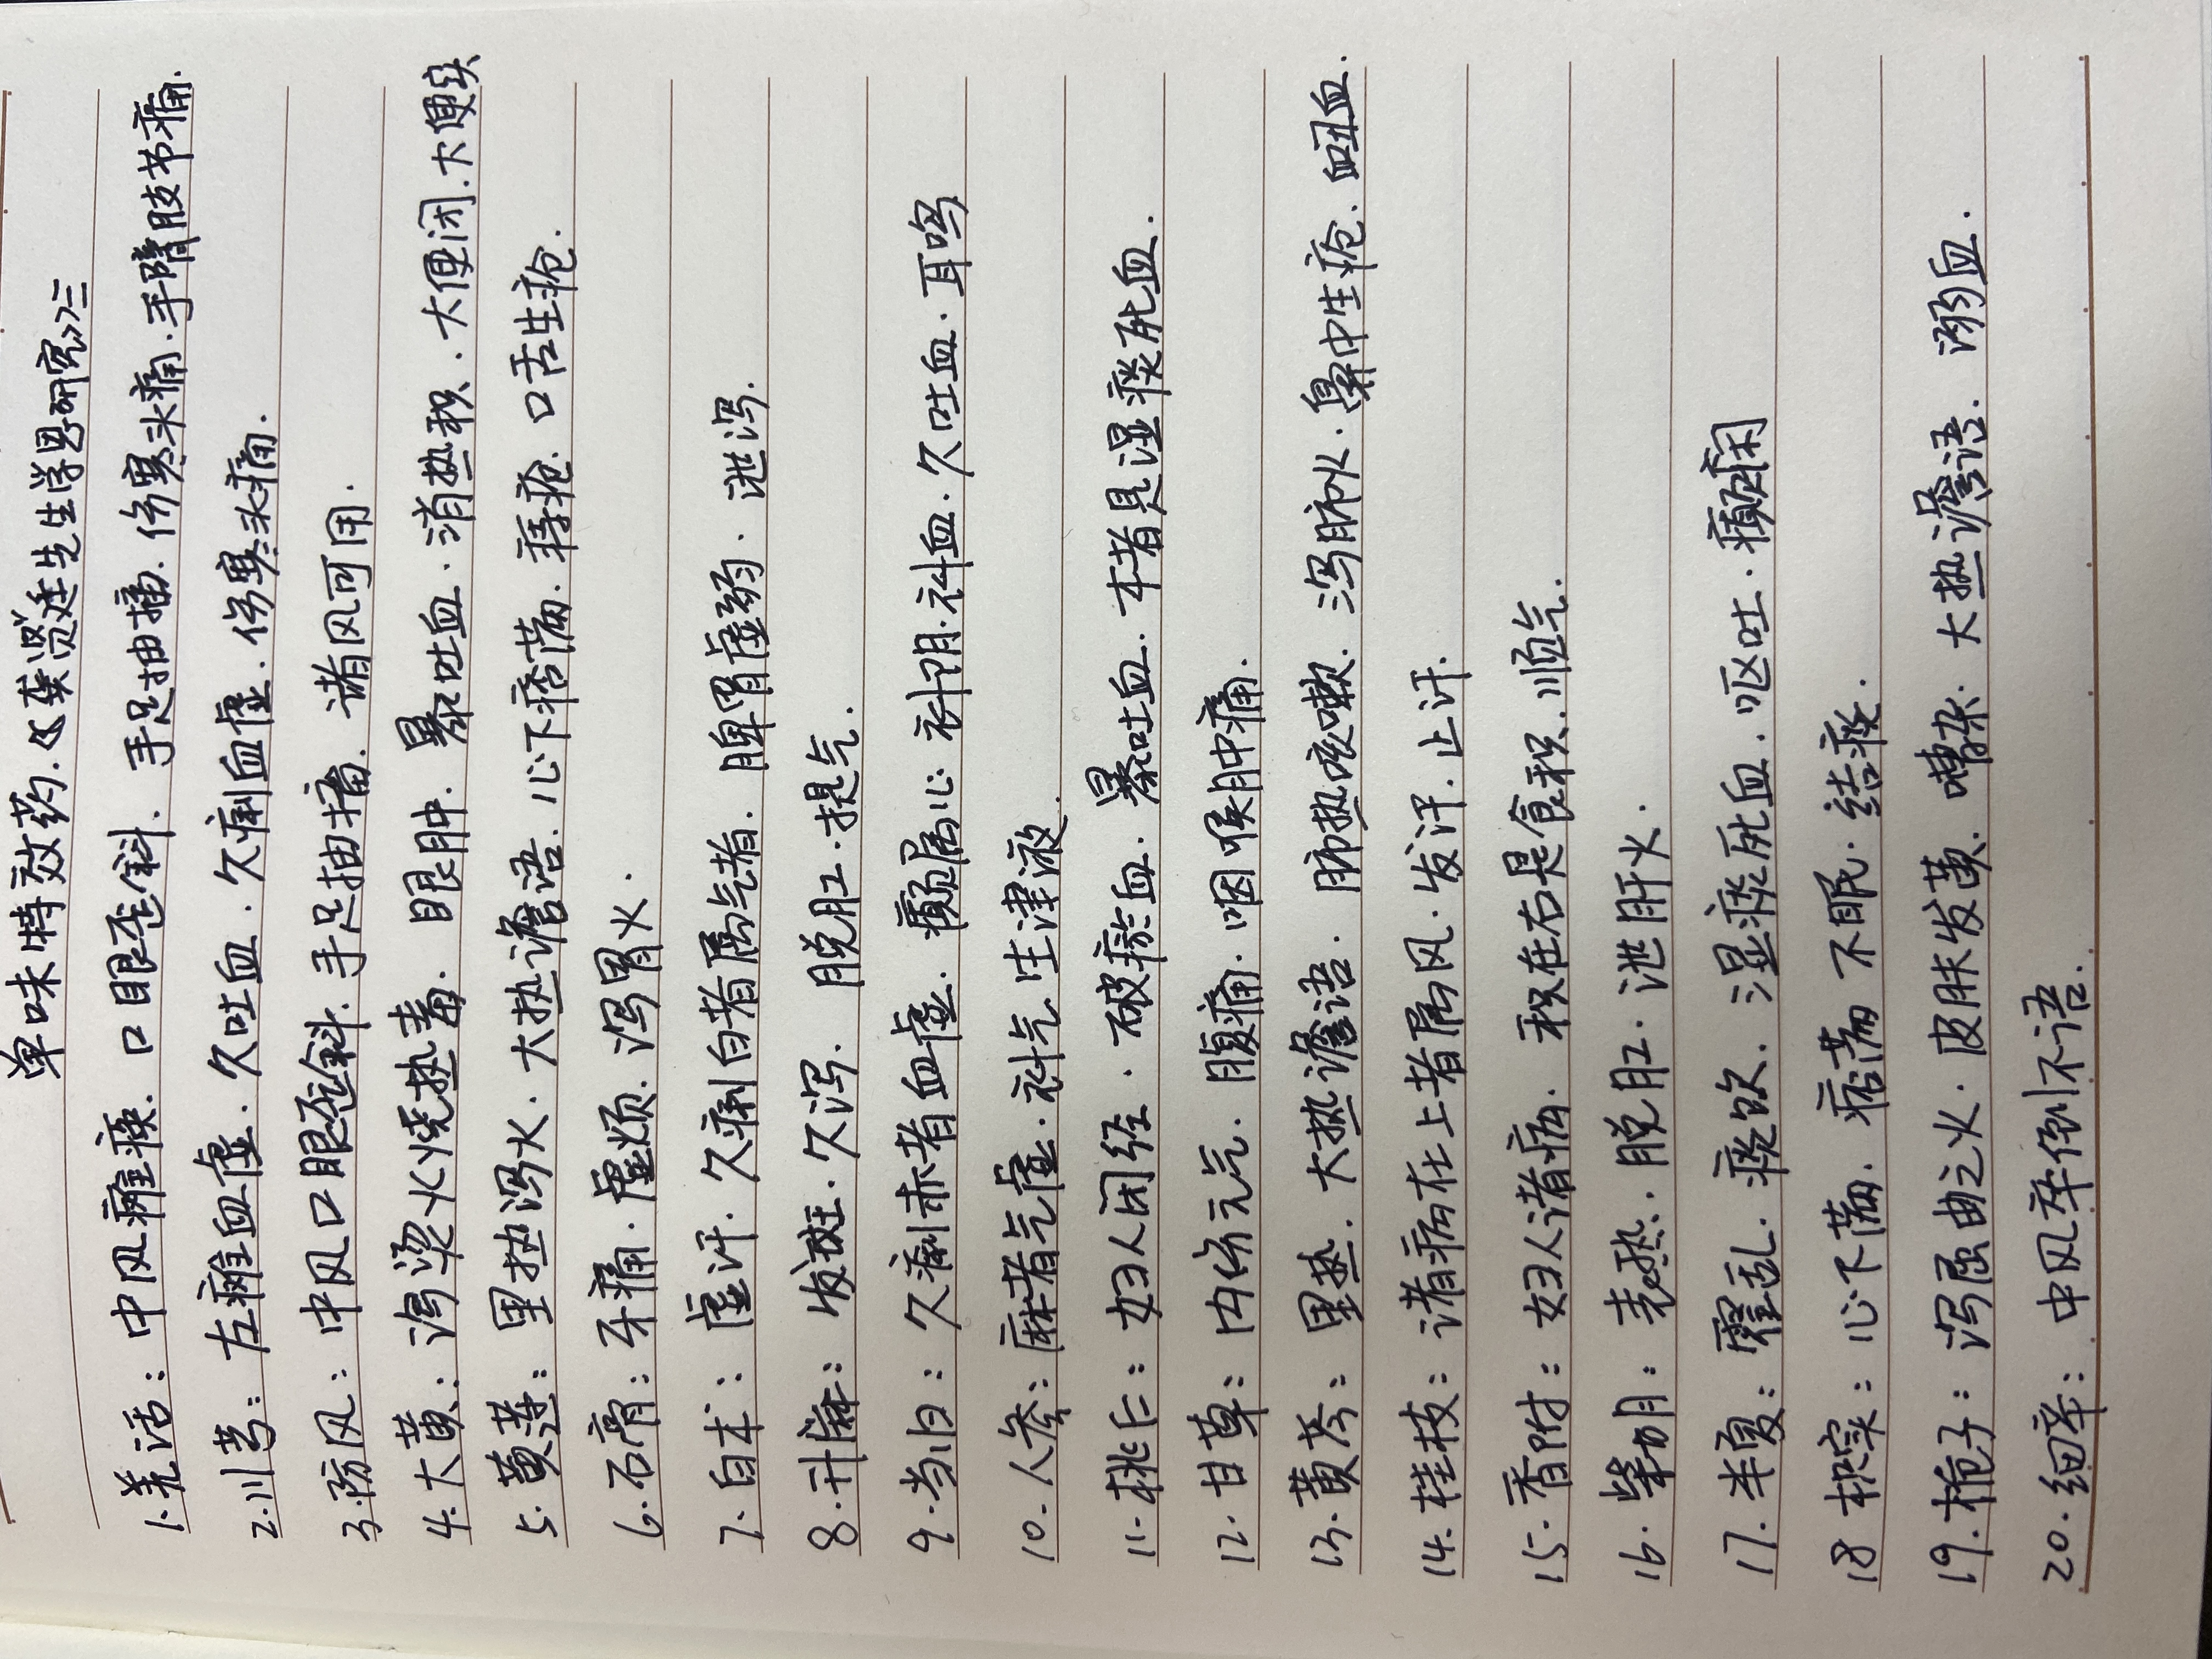 单味特效药.《龚贤廷生学思研究》三
1.羌活：中风瘫痪.口眼歪斜.手足抽搐.伤寒头痛.手臂肢节痛.
2.川芎：左瘫血虚.久吐血.久痢血虚.伤寒头痛.
3.防风：中风口眼歪斜.手足抽搐.诸风可用.
4.大黄：泻烫火烧热毒.眼肿.暴吐血.消热积.大便闭.大便实
5.黄连：里热泻火.大热谵语.心下痞满.痔疮.口舌生疮.
6.石膏：牙痛.虚烦.泻胃火.
7.白术：虚汗.久痢白者属气者.脾胃虚弱.泄泻.
8.升麻：发斑.久泻.脱肛.提气.
9.当归：久痢赤者血虚.癫属心.补阴.补血.久吐血.耳鸣
10.人参：麻者气虚.补气生津液.
11.桃仁：妇人闭经.破瘀血.暴吐血.木者是湿痰死血.
12.甘草：内伤元气.腹痛.咽喉肿痛.
13.黄芩：里热.大热谵语.肺热咳嗽.泻肺火.鼻中生疮.衄血.
14.桂枝：诸病在上者属风.发汗.止汗.
15.香附：妇人诸病.积在右是食积.顺气.
16.柴胡：表热.脱肛.泄肝火.
17.半夏：霍乱.痰饮.湿痰死血.呕吐.癫痫
18.枳实：心下满.痞满不眠.结痰.
19.栀子：泻屈曲之火.皮肤发黄.嘈杂.大热谵语.溺血.
20.细辛：中风卒倒不语.